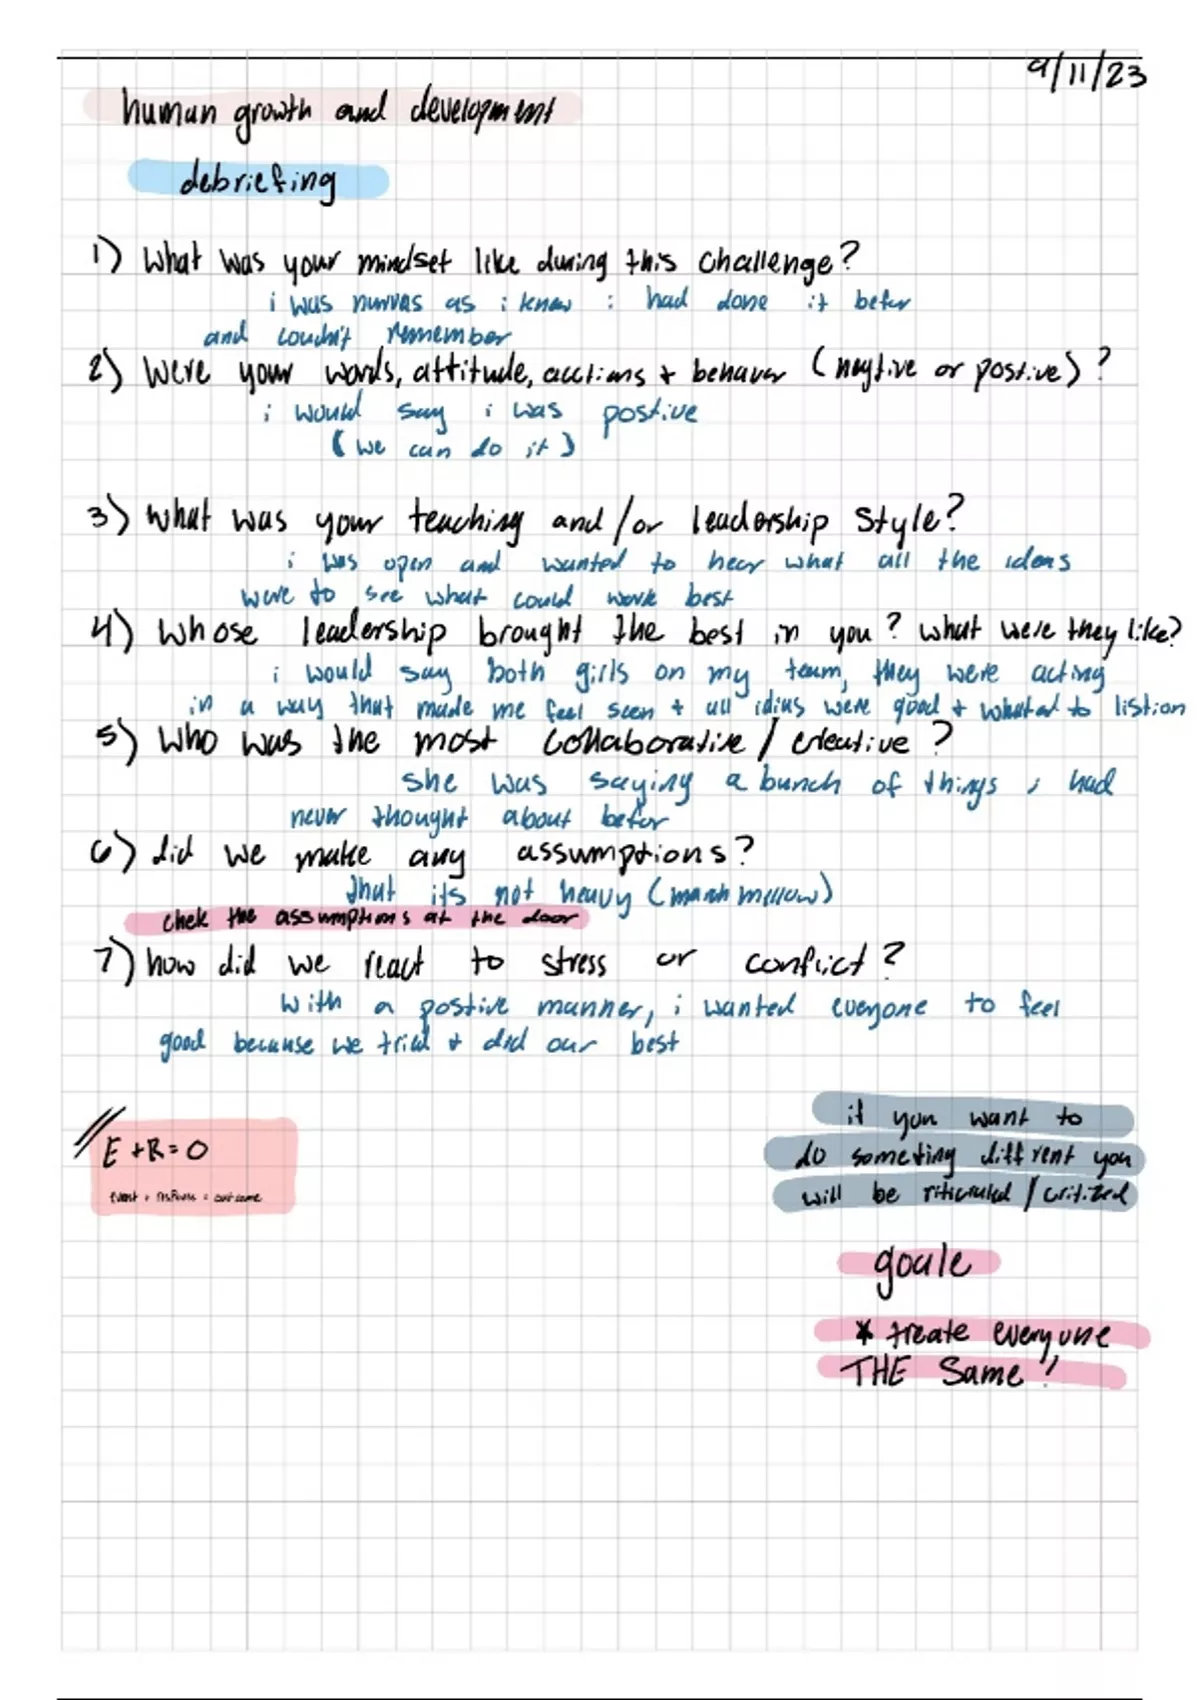 9/11/23
human growth and development
debriefing
1) What was your mindset like during this challenge?
i was nurvas as i knew i had done it befor
and couldn't remember
2) Were your words, attitude, acctions + behaver (negtive or postive)?
i would say i was postive
(we can do it)
3) What was your teaching and/or leadership style?
i was open and wanted to hear what all the ideas
were to see what could work best
4) Whose leadership brought the best in you? What were they like?
i would say both girls on my team, they were acting
in a way that made me feel seen + all idias were good + whated to listion
5) Who was the most collaborative/creative?
she was saying a bunch of things i had
never thought about befor
6) did we make any assumptions?
that its not heavy (marshmellow)
chek the assumptions at the door
7) how did we react to stress or conflict?
with a postive manner, i wanted everyone to feel
good because we tried + did our best
E+R=O
Event + response = outcome
if you want to
do someting diffrent you
will be riticruled/critized
goale
* treate everyone
THE Same!